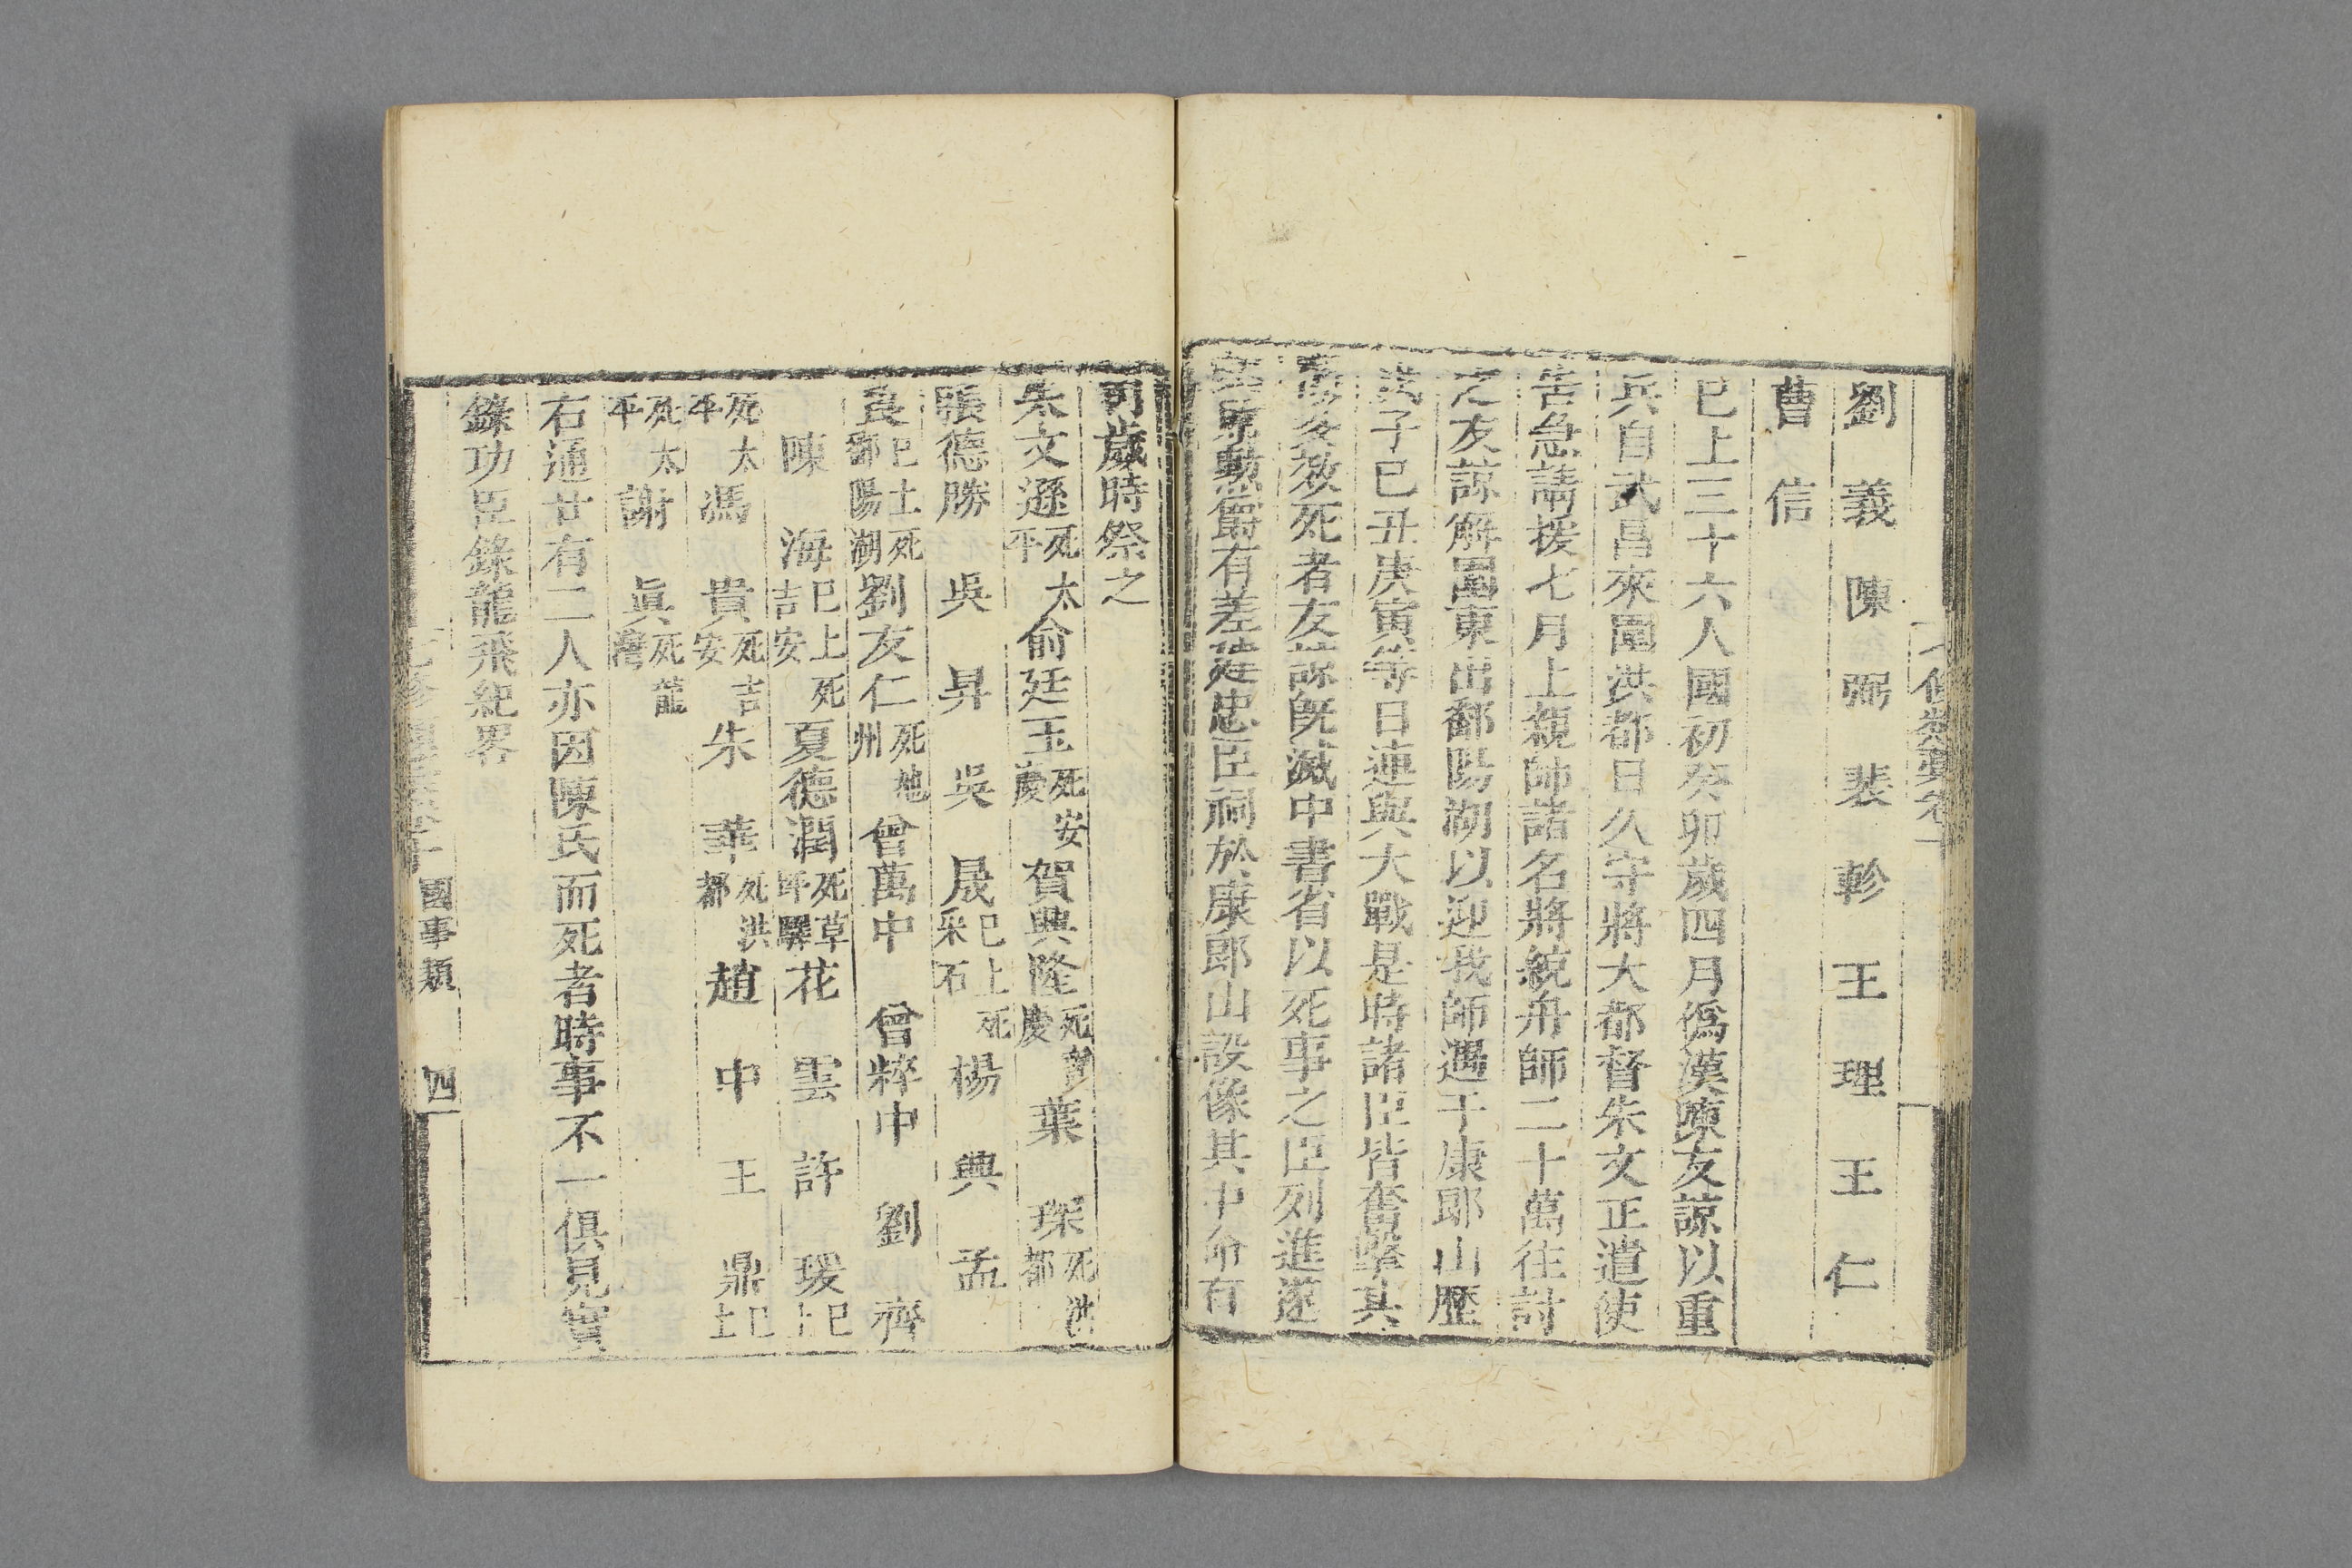 劉義陳弼裴軫王理王仁
曹信
巳上三十六人國初癸卯歲四月僞漢陳友諒以重
兵自武昌來圍洪都日久守將大都督朱文正遣使
告急請援七月上親帥諸名將統舟師二十萬往討
之友諒解圍東出鄱陽湖以迎我師遇于康郎山歷
子巳丑庚寅等日連與大戰是時諸臣皆奮擊其
效死者友諒旣滅中書省以死事之臣列進遂
勲爵有差建忠臣祠於康郎山設像其中命有
司歲時祭之
朱文遜死太平俞廷玉死安慶賀興隆死慶葉琛死洪都
張德勝吳昇吳晟巳上死采石楊興孟
良巳上死鄱陽湖劉友仁死池州曾萬中曾粹中劉齊
陳海巳上死吉安夏德潤死草坪驛花雲許瑗巳上
死太平馮貴死吉安朱華死洪都趙中王鼎巳上
死太平謝眞死龍灣
右通廿有二人亦因陳氏而死者時事不一俱見實
錄功臣錄龍飛紀畧
國事類
四